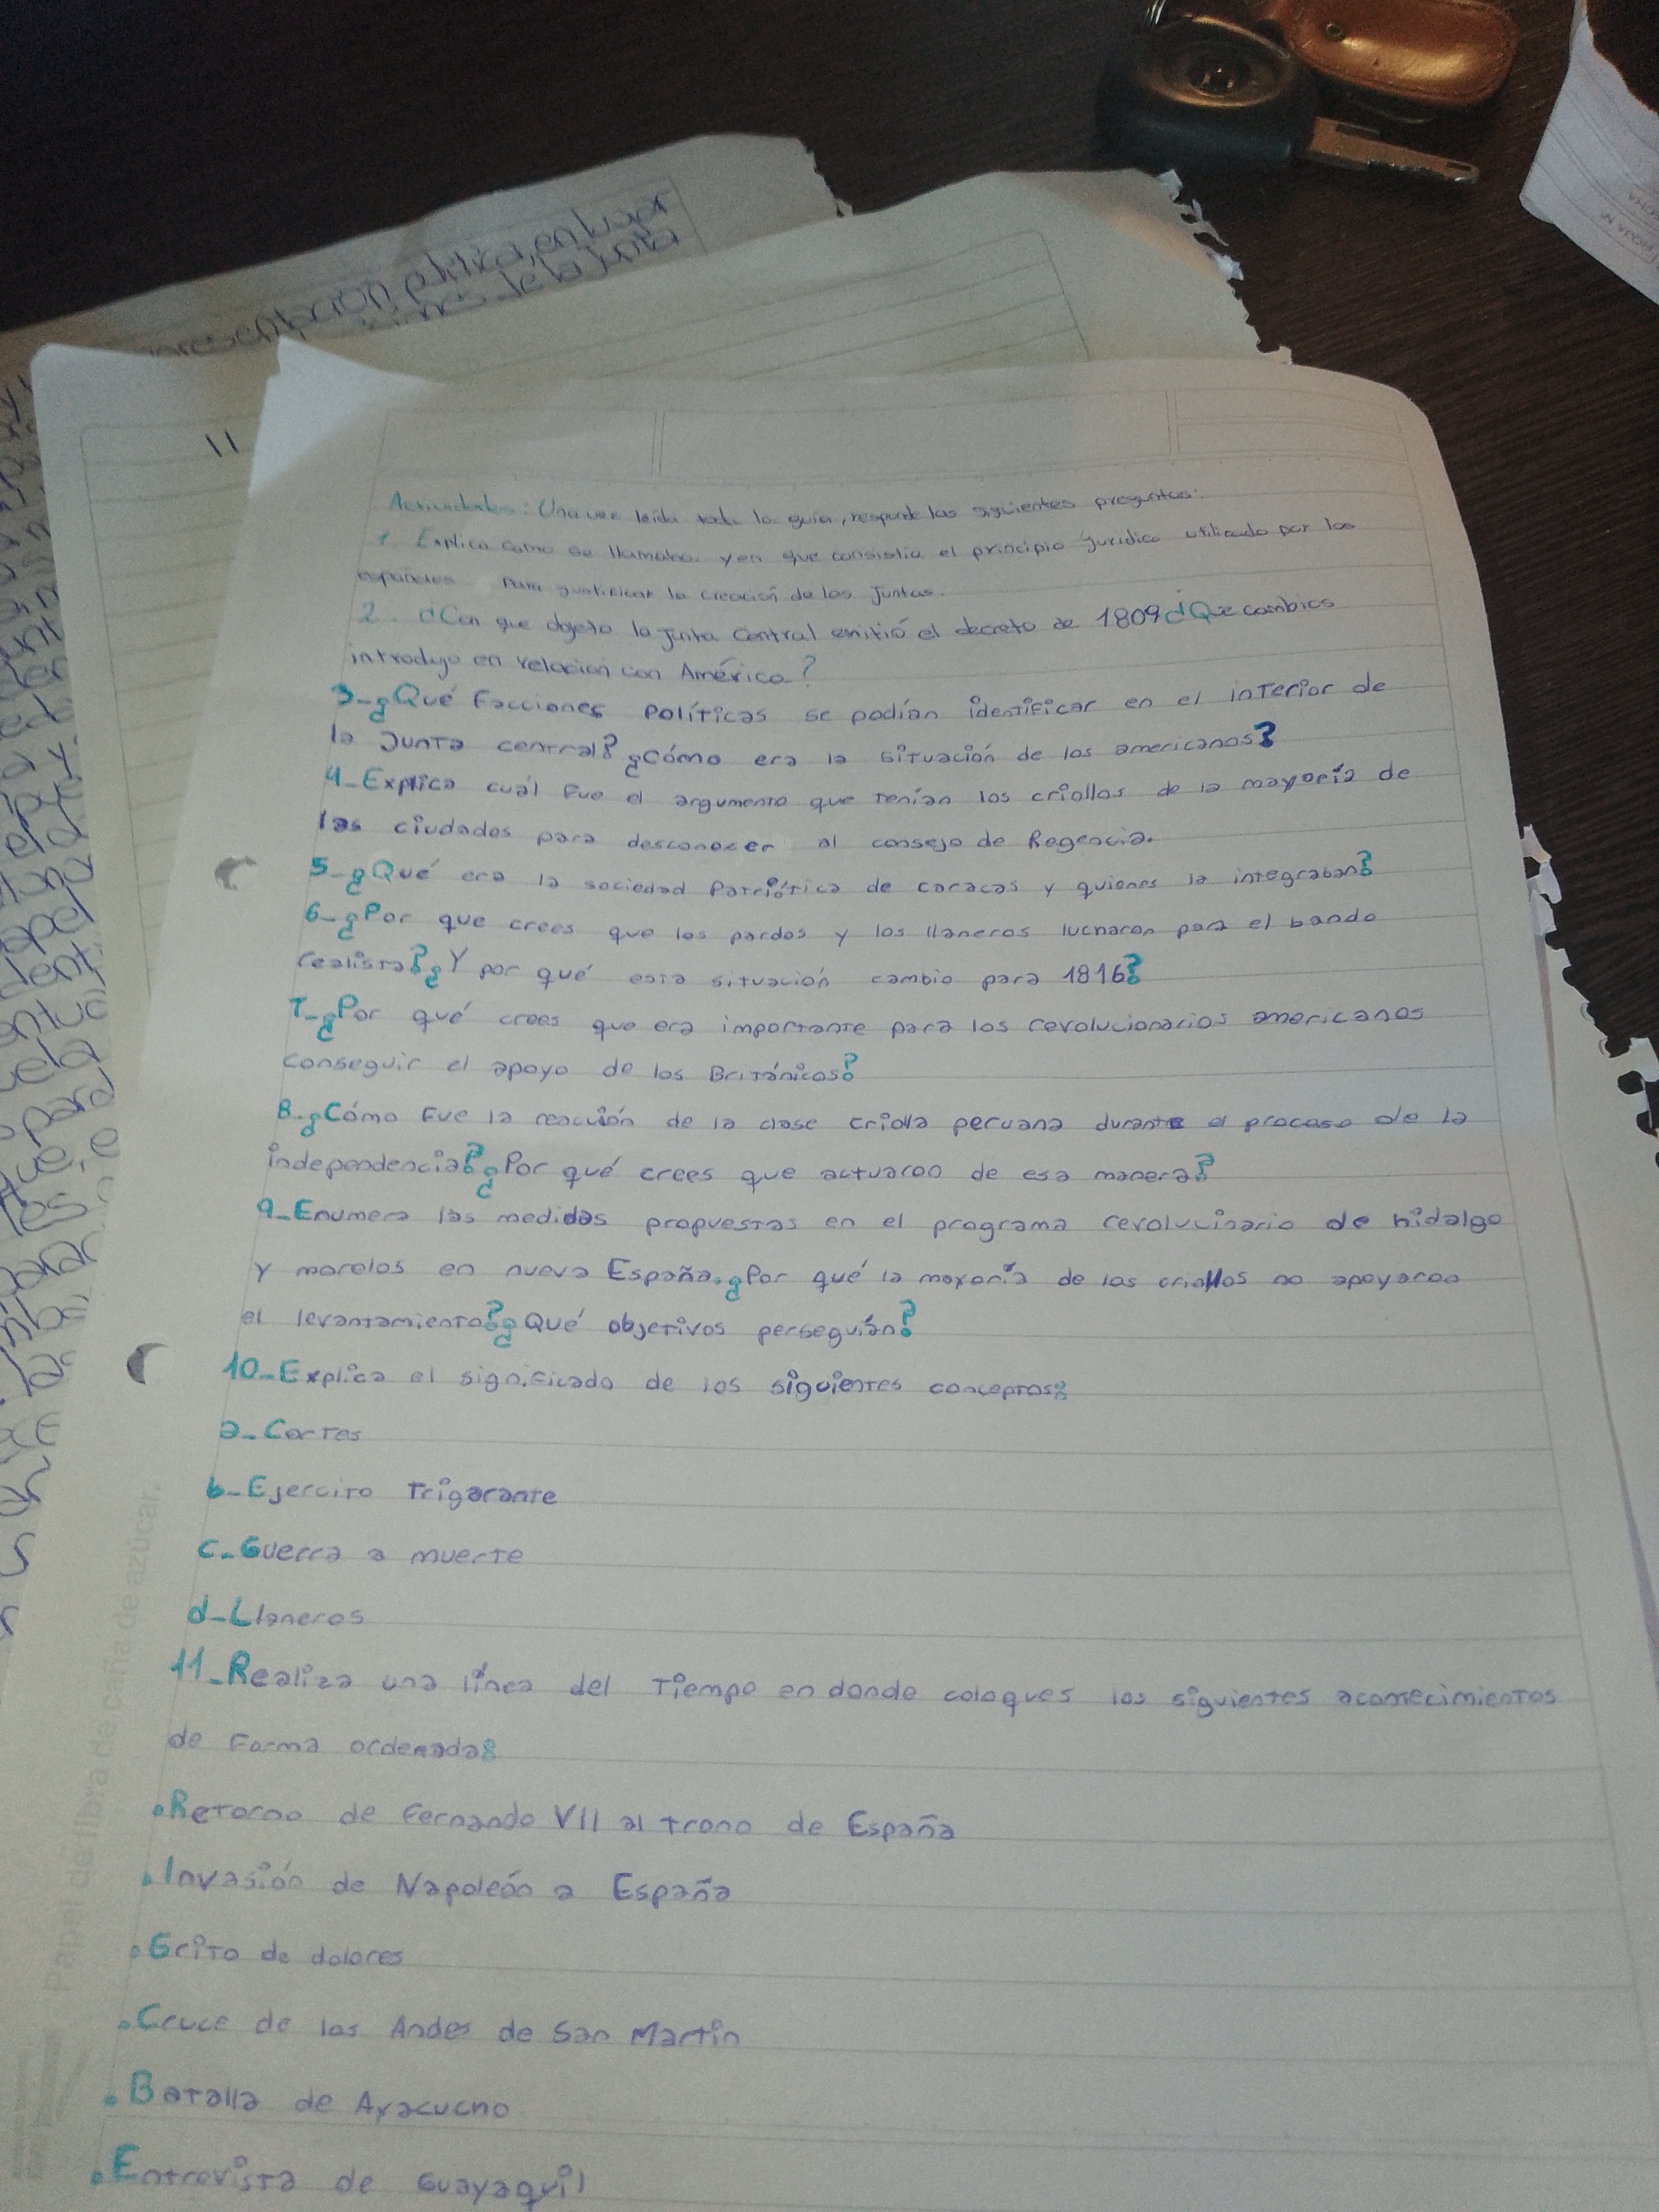 presentación política, en lugar
de la junta
11
HOJA Nº
Actividades: Una vez leída toda la guía, responde las siguientes preguntas:
1. Explica como se llamaba y en que consistia el principio jurídico utilizado por los
españoles para justificar la creación de las Juntas.
2. ¿Con que objeto la junta Central emitió el decreto de 1809 ¿Que cambios
introdujo en relación con América?
3-¿Qué Facciones Políticas se podían identificar en el interior de
la Junta central? ¿Cómo era la situación de los americanos?
4-Explica cuál Fue el argumento que tenían los criollos de la mayoría de
las ciudades para desconocer al consejo de Regencia.
5-¿Qué era la sociedad Patriótica de caracas y quienes la integraban?
6-¿Por que crees que los pardos y los llaneros lucharon para el bando
realista? ¿Y por qué esta situación cambio para 1816?
7-¿Por qué crees que era importante para los revolucionarios americanos
conseguir el apoyo de los Británicos?
8-¿Cómo Fue la reacción de la clase criolla peruana durante el proceso de la
independencia? ¿Por qué crees que actuaron de esa manera?
9-Enumera las medidas propuestas en el programa revolucinario de hidalgo
y morelos en nueva España. ¿Por qué la mayoría de los criollos no apoyaron
el levantamiento? ¿Qué objetivos perseguían?
10-Explica el significado de los siguientes conceptos:
a-Cortes
b-Ejercito Trigarante
c-Guerra a muerte
d-Llaneros
11-Realiza una línea del Tiempo en donde coloques los siguientes acontecimientos
de Forma ordenada:
•Retorno de Fernando VII al trono de España
•Invasión de Napoleón a España
•Grito de dolores
•Cruce de los Andes de San Martín
•Batalla de Ayacucho
•Entrevista de Guayaquil
Papel de fibra de caña de azúcar.